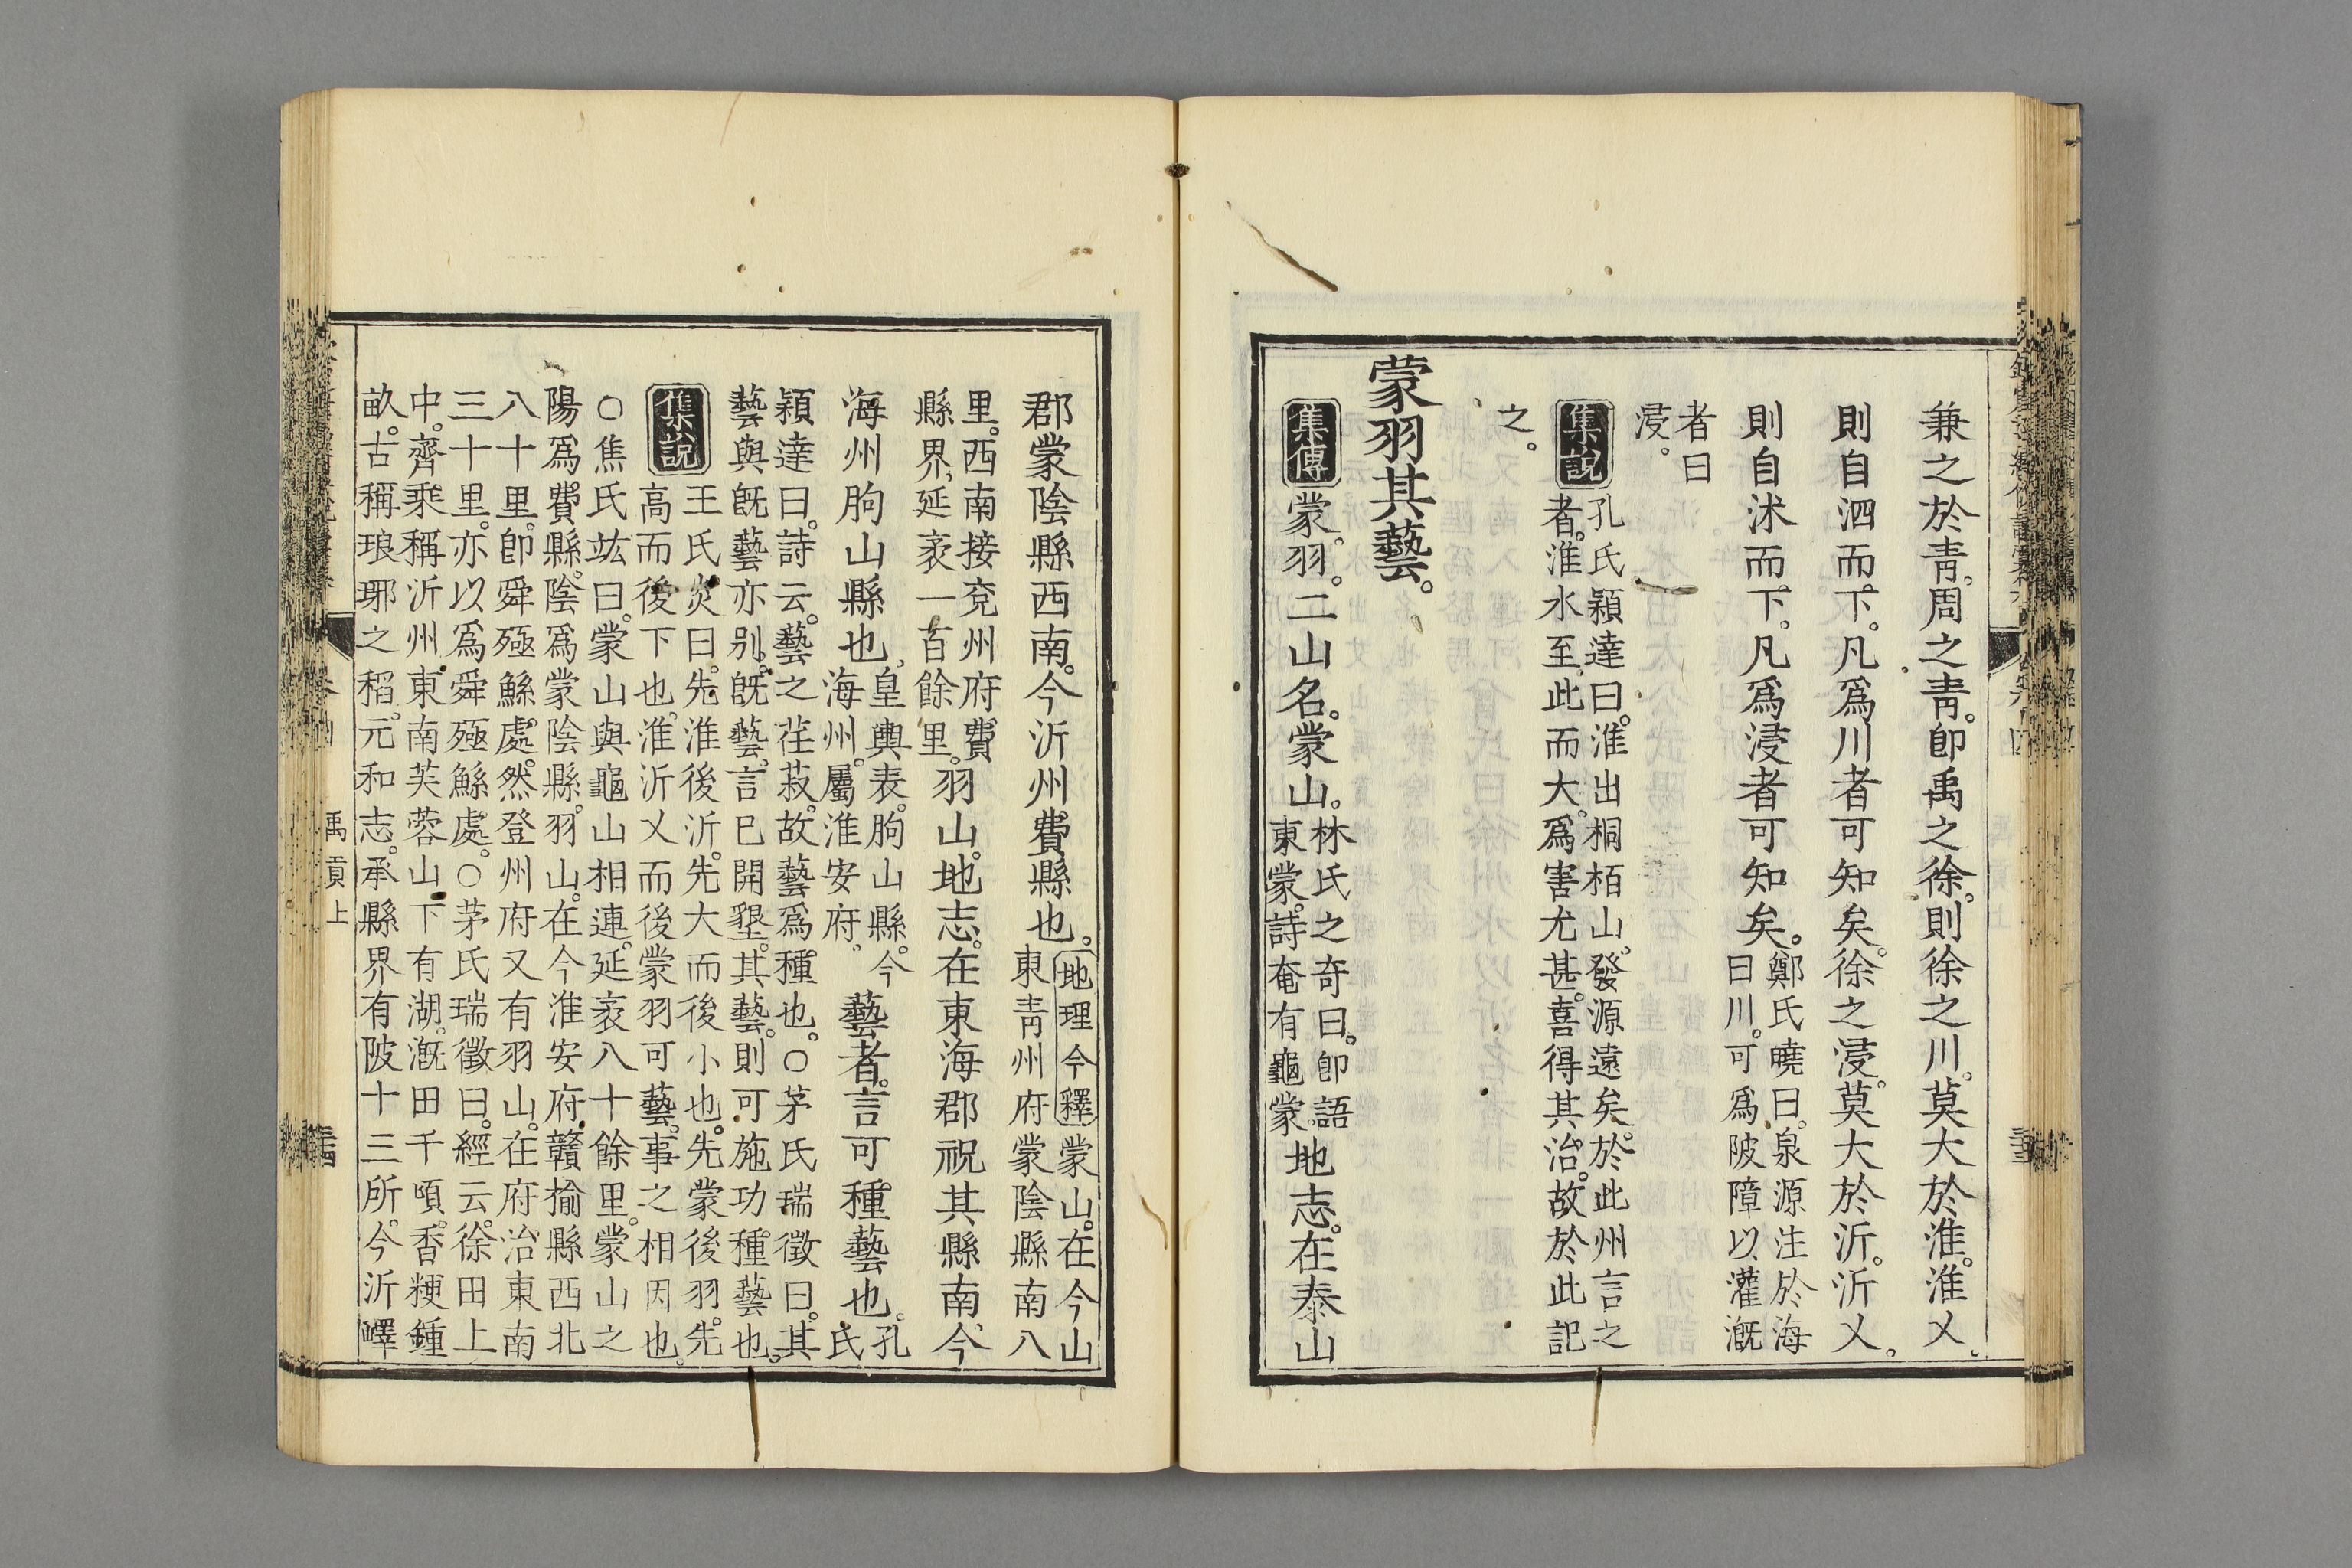 兼之於靑。周之靑。卽禹之徐。則徐之川。莫大於淮。淮乂。
則自泗而下。凡爲川者可知矣。徐之浸。莫大於沂。沂乂。
則自沭而下。凡爲浸者可知矣。鄭氏曉曰。泉源注於海
曰川。可爲陂障以灌漑
者曰
浸。
集說
孔氏穎達曰。淮出桐栢山。發源遠矣。於此州言之
者。淮水至此而大。爲害尤甚。喜得其治。故於此記
之。
蒙羽其藝。
集傳
蒙。羽。二山名。蒙山。林氏之奇曰。卽語
東蒙。詩奄有龜蒙。地志。在泰山
郡蒙陰縣西南。今沂州費縣也。地理今釋蒙山。在今山
東靑州府蒙陰縣南八
里。西南接兗州府費
縣界。延袤一百餘里。羽山。地志。在東海郡祝其縣南。今
海州朐山縣也。皇輿表。朐山縣。今
海州。屬淮安府。藝者。言可種藝也。孔
氏
穎達曰。詩云。藝之荏菽。故藝爲種也。○茅氏瑞徵曰。其
藝與旣藝亦别。旣藝。言已開墾。其藝。則可施功種藝也。
集說
王氏炎曰。先淮後沂。先大而後小也。先蒙後羽。先
高而後下也。淮沂乂而後蒙羽可藝。事之相因也。
○焦氏竑曰。蒙山與龜山相連。延袤八十餘里。蒙山之
陽爲費縣。陰爲蒙陰縣。羽山。在今淮安府贛揄縣西北
八十里。卽舜殛鯀處。然登州府又有羽山。在府治東南
三十里。亦以爲舜殛鯀處。○茅氏瑞徵曰。經云。徐田上
中。齊乘稱沂州東南芙蓉山下有湖。漑田千頃。香粳鍾
畝。古稱琅琊之稻。元和志。承縣界有陂十三所。今沂嶧
禹貢上